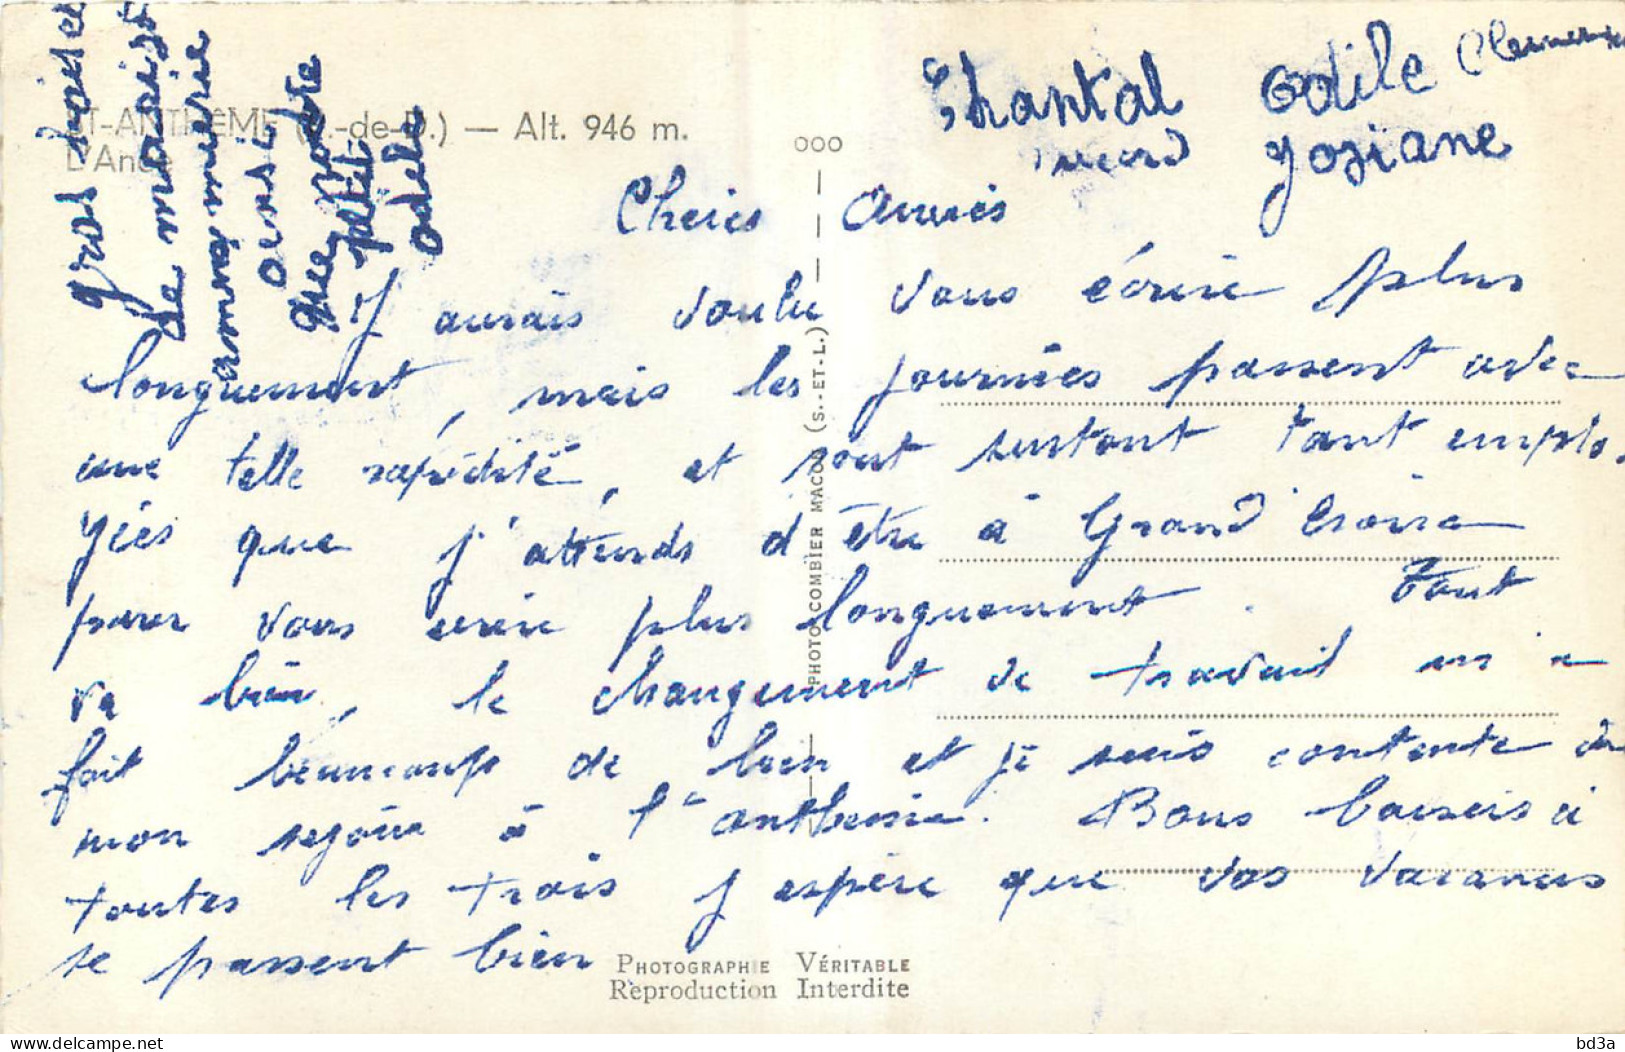 ST-ANTHÊME (P.-de-D.) — Alt. 946 m.
L'Ance
Chantal Odile
Josiane
Gros baiser
de
ainsi
que votre
petit
odile
Cheres Amies
J'aurais voulu vous écrire plus
longuement, mais les journées passent avec
une telle rapidité, et sont surtout tant emplo
yées que j'attends d'être à Grand'Croix
pour vous écrire plus longuement. Tout
va bien, le changement de travail m'a
fait beaucoup de bien et je suis contente de
mon séjour à St Antheme. Bons baisers à
toutes les trois J espère que vos vacances
se passent bien
PHOTO COMBIER MACON (S.-ET-L.)
PHOTOGRAPHIE VÉRITABLE
Reproduction Interdite
delcampe.net
bd3a